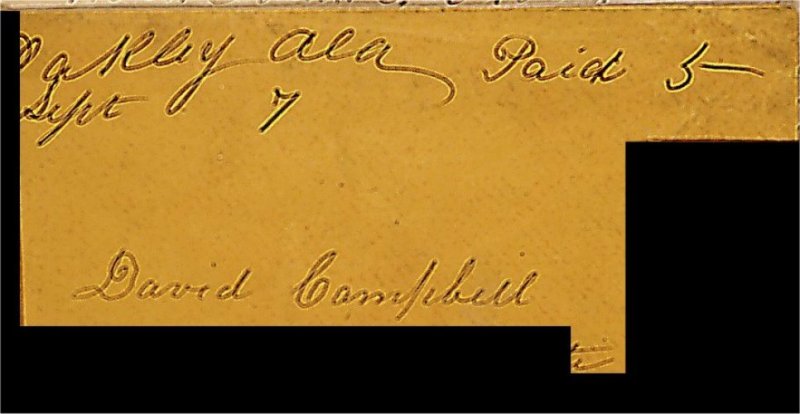 Oakley Ala Paid 5
Sept 7
David Campbell